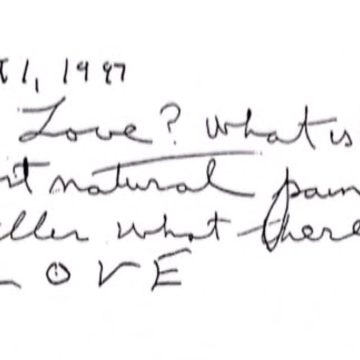 t 1, 1997
Love? What is
st natural pain
ller what there
LOVE